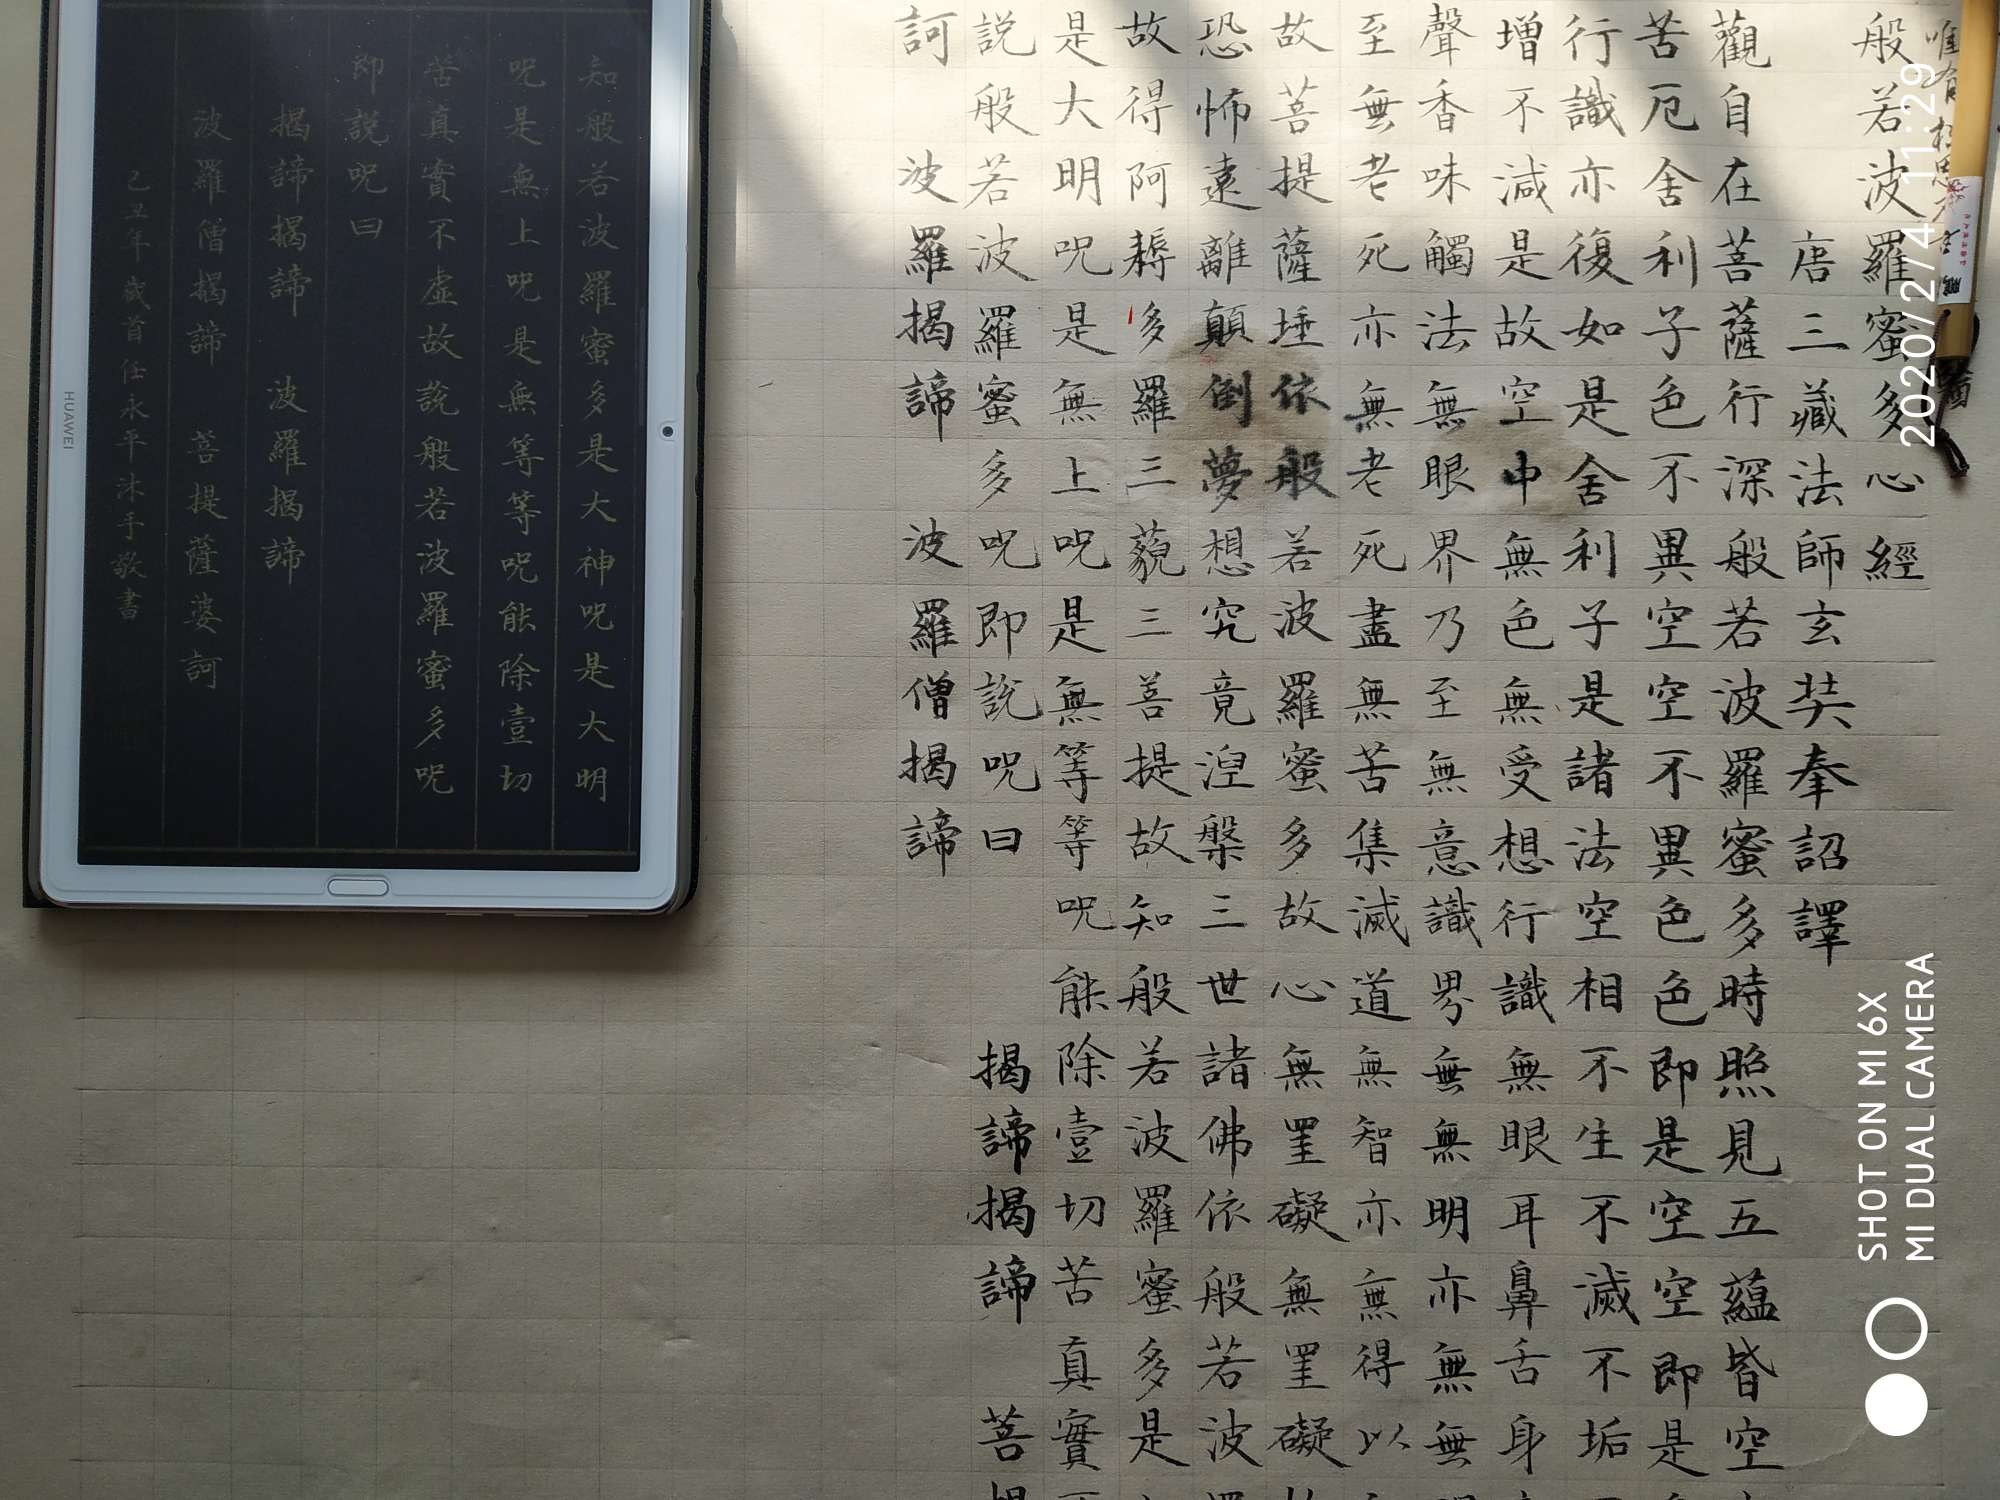 般若波羅蜜多心經
唐三藏法師玄奘奉詔譯
觀自在菩薩行深般若波羅蜜多時照見五蘊皆空
苦厄舍利子色不異空空不異色色即是空空即是
行識亦復如是舍利子是諸法空相不生不滅不垢
增不減是故空中無色無受想行識無眼耳鼻舌身
聲香味觸法無眼界乃至無意識界無無明亦無無
至無老死亦無老死盡無苦集滅道無智亦無得以
故菩提薩埵依般若波羅蜜多故心無罣礙無罣礙
恐怖遠離顛倒夢想究竟涅槃三世諸佛依般若波
故得阿耨多羅三藐三菩提故知般若波羅蜜多是
是大明咒是無上咒是無等等咒能除壹切苦真實
說般若波羅蜜多咒即說咒曰 揭諦揭諦 菩
訶 波羅揭諦 波羅僧揭諦
知般若波羅蜜多是大神咒是大明
咒是無上咒是無等等咒能除壹切
苦真實不虛故說般若波羅蜜多咒
即說咒曰
揭諦揭諦 波羅揭諦
波羅僧揭諦 菩提薩婆訶
己丑年歲首任永平沐手敬書
HUAWEI
2020/2/4 11:29
SHOT ON MI 6X
MI DUAL CAMERA